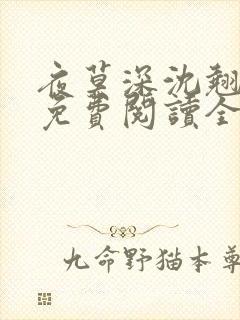 夜草深沈翘
免費閱讀全
九命野猫本尊